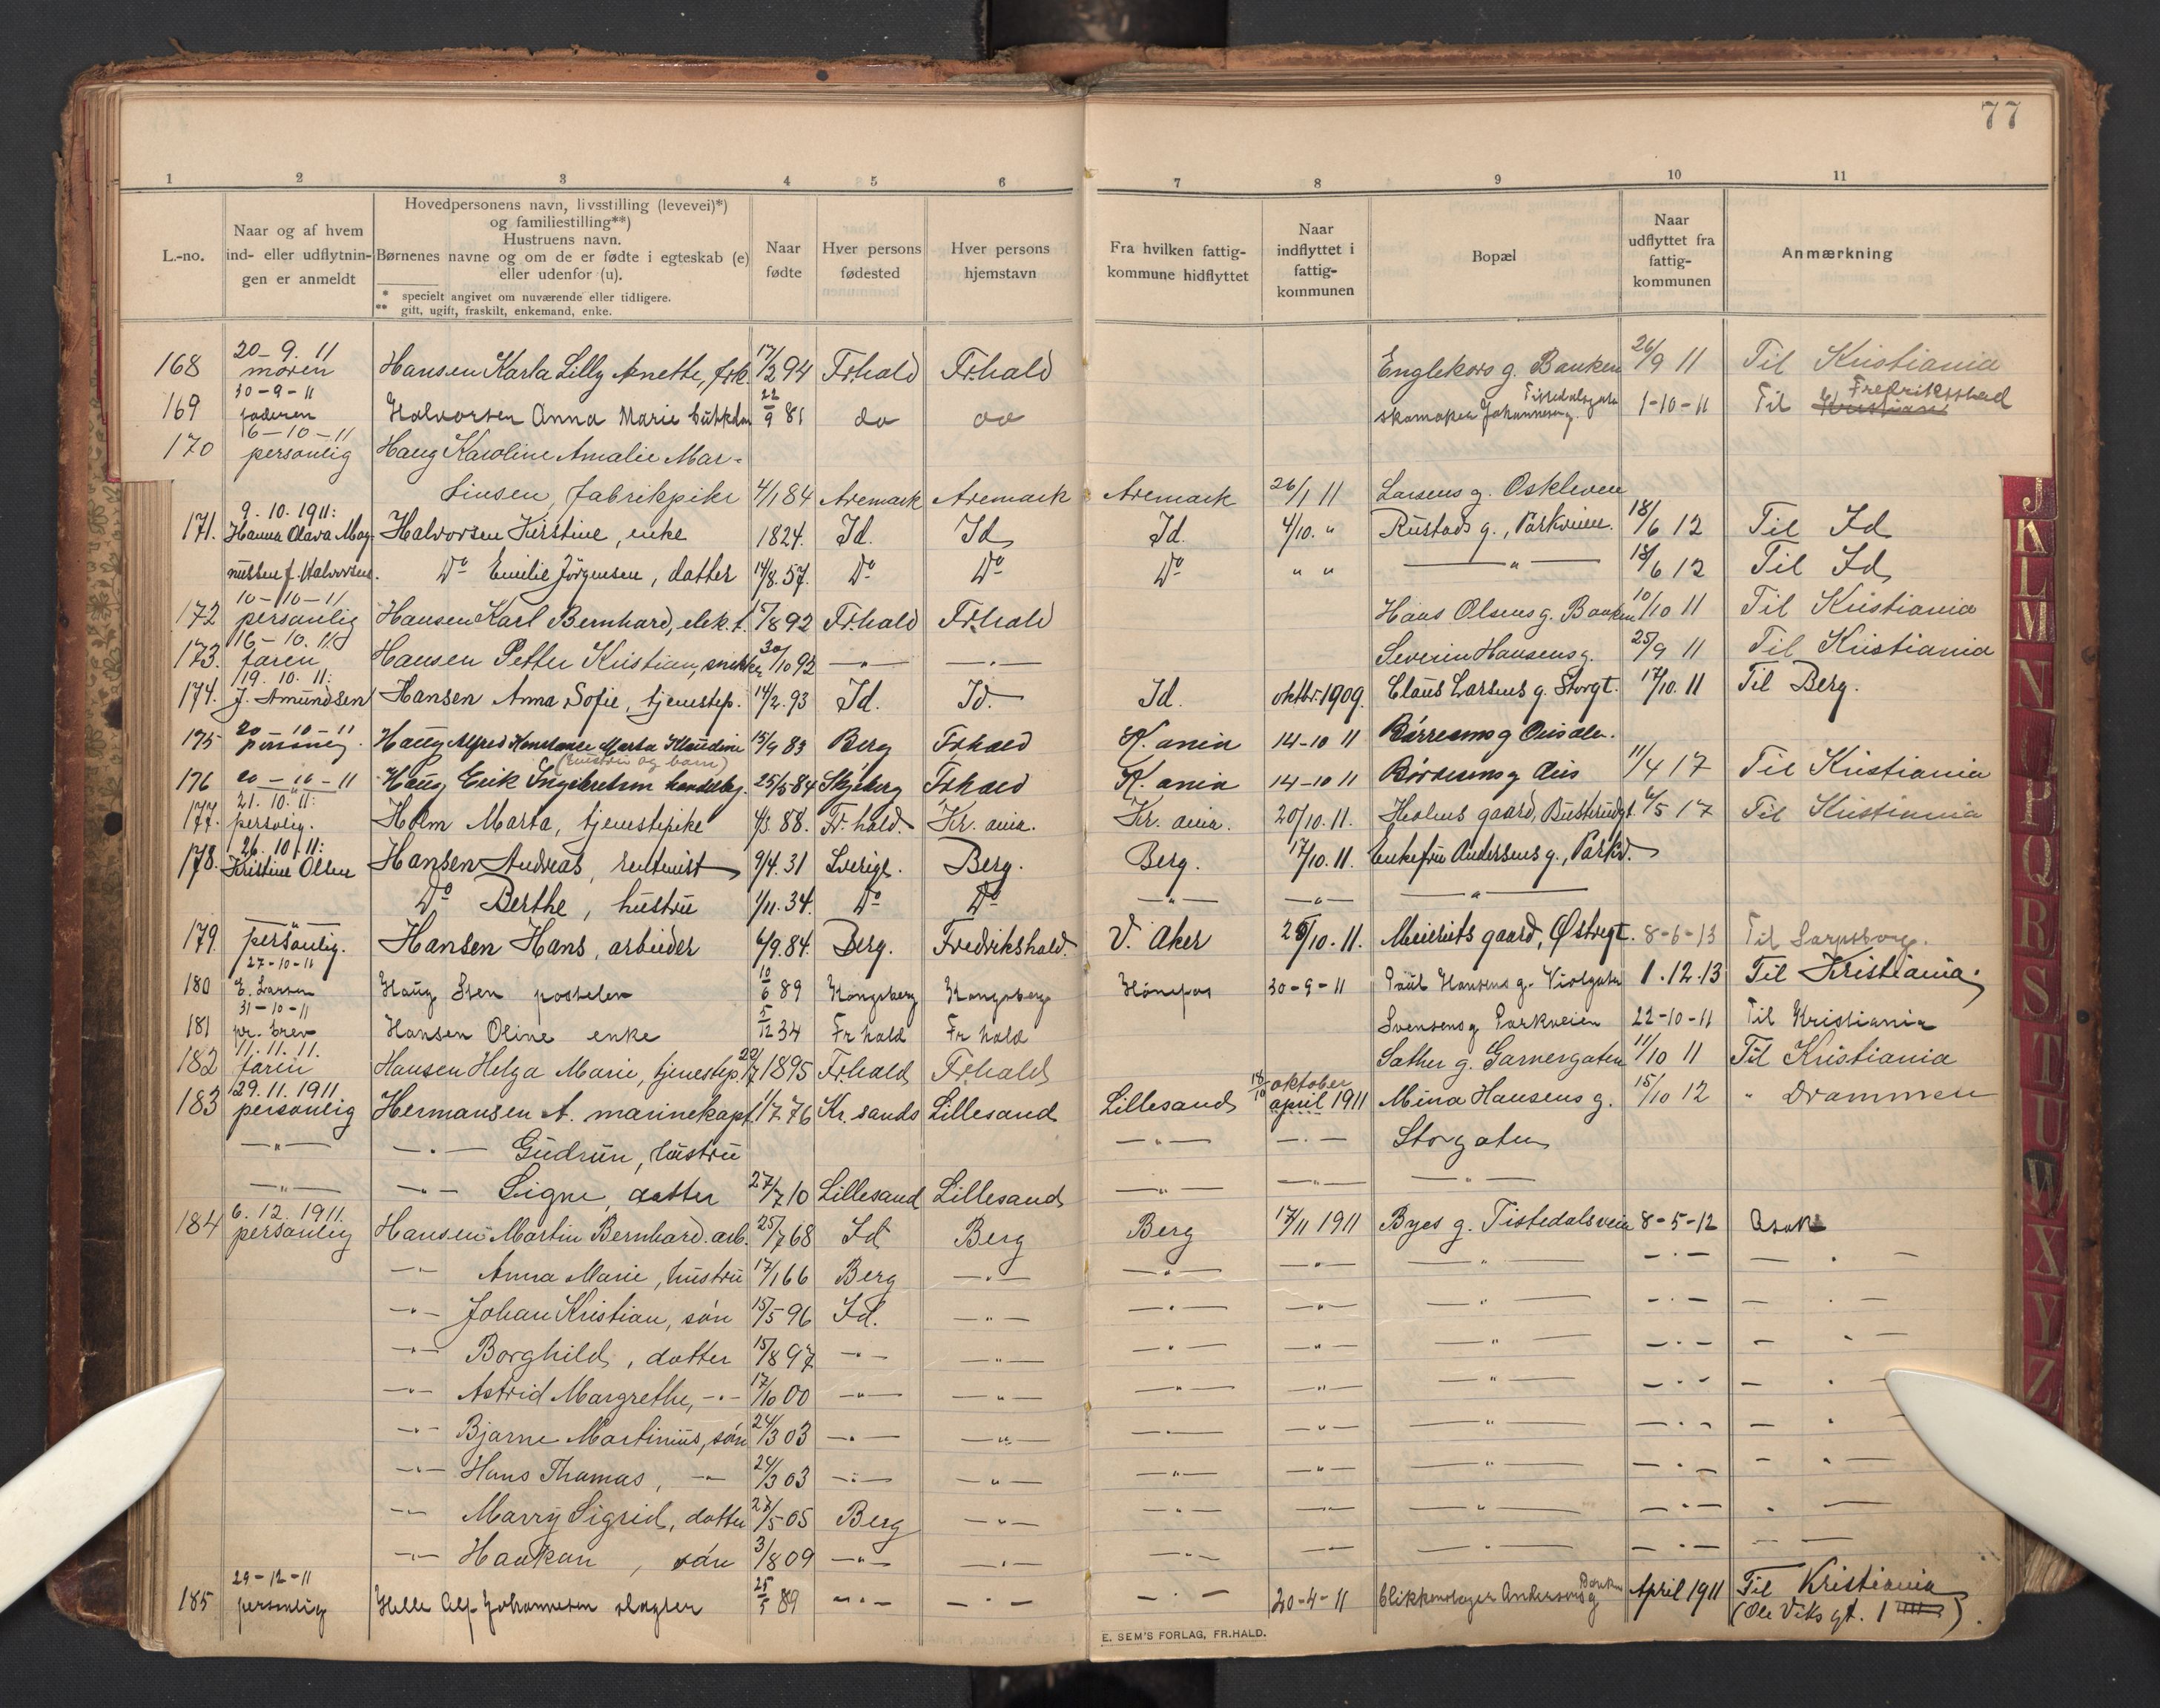 77
1 2 3 4 5 6 7 8 9 10 11
L.-no.
Naar og af hvem
ind- eller udflytnin-
gen er anmeldt
Hovedpersonens navn, livsstilling (levevei)*)
og familiestilling**)
Hustruens navn.
Børnenes navne og om de er fødte i egteskab (e)
eller udenfor (u).
* specielt angivet om nuværende eller tidligere.
** gift, ugift, fraskilt, enkemand, enke.
Naar
fødte
Hver persons
fødested
Hver persons
hjemstavn
Fra hvilken fattig-
kommune hidflyttet
Naar
indflyttet i
fattig-
kommunen
Bopæl
Naar
udflyttet fra
fattig-
kommunen
Anmærkning
20-9. 11
168 moren Hansen Karla Lilly Anette, frk. 17/2 94 Fr.hald Fr.hald Englekors g. Banken 26/9 11 Til Kristiania
30-9-11 Tistedalsgata Fredriksstad
169 faderen Halvorsen Anna Marie 22/9 81 do do skomaker Johannesens g. 1-10-11 Til
16-10-11
170 personlig Haug Karoline Amalie Mar-
tinsen, fabrikpike 4/1 84 Aremark Aremark Aremark 26/1 11 Larsens g. Oskleven
9. 10. 1911:
171. Hanna Olava Mag- Halvorsen Kirstine, enke 1824. Id. Id Id. 4/10. " Rustads g., Parkveien. 18/6 12 Til Id
nussen f. Halvorsen. Do Emilie Jörgensen, datter 14/8. 57. Do Do Do " " — " — 18/6 12 Til Id
10-10-11
172 personlig Hansen Karl Bernhard, elek. t. 17/8 92 Fr.hald Fr.hald Hans Olsens g. Banken 10/10 11 Til Kristiania
16-10. 11
173. faren Hansen Petter Kristian, snekker 30/10 92 — " — — " — Severin Hansens g. 25/9 11 Til Kristiania
19. 10. 11:
174. J. Amundsen Hansen Anna Sofie, tjenestep. 14/2. 93 Id. Id. Id. oktbr. 1909. Claus Larsens g. Storgt. 17/10. 11 Til Berg.
20-10-11
175 personlig Haug Alfred Konstance Marta Klaudine 15/9 83 Berg Frhald K.ania 14-10 11 Börresens g
(hustru og barn)
176 20-10-11 Haug Erik Ingebretsen handelsbj. 25/5 84 Skjeberg Frhald K.ania 14-10 11 Börresens g 11/4 17 Til Kristiania
21. 10. 11:
177. persolig. Holm Marta, tjenestepike 4/3. 88. Fr.hald. Kr.ania. Kr.ania. 20/10. 11. Holms gaard, Busterudgt. 6/5 17 Til Kristiania
26. 10. 11:
178. Kristine Olsen Hansen Andreas, rentenist 9/4. 31 Sverige. Berg. Berg. 17/10. 11. Enkefru Andersens g., Parkv.
Do Berthe, hustru 1/11. 34. Do Do — " — — " — — " —
— " —
179. personlig. Hansen Hans, arbeider 6/9. 84. Berg. Fredrikshald. V. Aker 28/10. 11. Meieriets gaard, Østregt. 8-6-13 Til Sarpsborg.
27-10-11
180 E. Larsen Haug Sten postelev 10/6 89 Kongsberg Kongsberg Hönefos 30-9-11 Paul Hansens g. Violgaten 1.12.13 Til Kristiania.
31-10-11
181 pr. brev Hansen Oline enke 5/12 34 Fr hald Fr hald Svensens g Parkveien 22-10-11 Til Kristiania
11. 11. 11.
182 faren Hansen Helga Marie, tjenestep. 22/7 1895 Fr.hald Fr.hald Sather g. Garvergaten 11/10 11 Til Kristiania
29. 11. 1911 18/10 oktober
183 personlig Hermansen A. marinekapt. 1/7 76 Kr.sand Lillesand Lillesand april 1911 Mina Hansens g. 15/10 12 " Drammen
— " — — " — Gudrun, hustru — " — — " — Storgaten
— " — — " — Signe, datter 27/7 10 Lillesand Lillesand — " — — " — — " —
6. 12. 1911.
184 personlig Hansen Martin Bernhard. arb. 25/7 68 Id Berg Berg 17/11 1911 Byes g. Tistedalsveien 8-5-12 Asak
— " — Anna Marie, hustru 17/1 66 Berg — " — — " — — " — — " — — " — — " —
— " — Johan Kristian, sön 15/5 96 Id. — " — — " — — " — — " — — " — — " —
— " — Borghild, datter 15/8 97 — " — — " — — " — — " — — " — — " — — " —
— " — Astrid Margrethe, — " — 17/10 00 — " — — " — — " — — " — — " — — " — — " —
— " — Bjarne Martinius, sön 24/3 03 — " — — " — — " — — " — — " — — " — — " —
— " — Hans Thomas, — " — 24/3 03 — " — — " — — " — — " — — " — — " — — " —
— " — Marry Sigrid, datter 27/5 05 Berg — " — — " — — " — — " — — " — — " —
— " — Haakon, sön 3/8 09 — " — — " — — " — — " — — " — — " — — " —
29-12-11 Banken
185 personlig Helle Alf Johannesen slagter 25/5 89 — " — — " — — " — 20-4-11 blikkenslager Andersens g April 1911 Til Kristiania
(Ole Viks gt. 1).
E. SEM'S FORLAG, FR.HALD.
J
K
L
M
N
P
Q
R
S
T
U
W
X
Y
Z